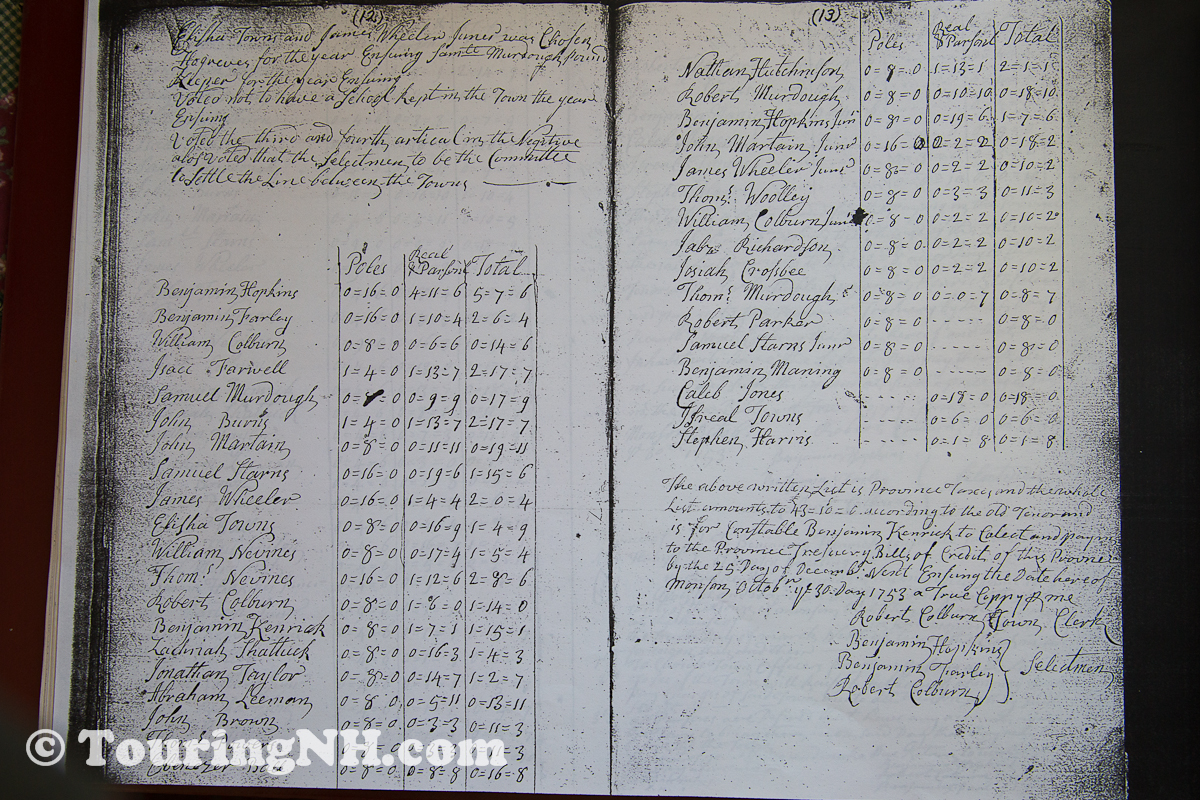 (12)
Elisha Towns and James Wheeler Juner was Chosen
Hogreves for the year Ensuing Samll Murdough Pound
Keeper for the year Ensuing
Voted not to have a School kept in the Town the year
Ensuing
Voted the third and fourth artical in the Negitive
alos Voted that the Selectmen to be the Committe
to Settle the Line between the Towns
Poles Real & Parsonl Total
Benjamin Hopkins 0=16=0 4=11=6 5=7=6
Benjamin Farley 0=16=0 1=10=4 2=6=4
William Colburn 0=8=0 0=6=6 0=14=6
Isacc Farwell 1=4=0 1=13=7 2=17=7
Samuel Murdough 0=8=0 0=9=9 0=17=9
John Burns 1=4=0 1=13=7 2=17=7
John Martain 0=8=0 0=11=11 0=19=11
Samuel Starns 0=16=0 0=19=6 1=15=6
James Wheeler 0=16=0 1=4=4 2=0=4
Elisha Towns 0=8=0 0=16=9 1=4=9
William Nevines 0=8=0 0=17=4 1=5=4
Thoms Nevines 0=16=0 1=12=6 2=8=6
Robert Colburn 0=8=0 1=6=0 1=14=0
Benjamin Kenrick 0=8=0 1=7=1 1=15=1
Zachriah Shattuck 0=8=0 0=16=3 1=4=3
Jonathan Taylor 0=8=0 0=14=7 1=2=7
Abraham Leeman 0=8=0 0=5=11 0=13=11
John Brown 0=8=0 0=3=3 0=11=3
0=8=8 0=16=8
(13)
Poles Real & Parsonl Total
Nathan Hutchinson 0=8=0 1=13=1 2=1=1
Robert Murdough 0=8=0 0=10=10 0=18=10
Benjamin Hopkins Junr 0=8=0 0=19=6 1=7=6
John Martain Junr 0=16=0 0=2=2 0=18=2
James Wheeler Junr 0=8=0 0=2=2 0=10=2
Thoms Woolley 0=8=0 0=3=3 0=11=3
William Colburn Junr 0=8=0 0=2=2 0=10=2
Jabz Richardson 0=8=0 0=2=2 0=10=2
Josiah Crosbee 0=8=0 0=2=2 0=10=2
Thoms Murdough 0=8=0 0=0=7 0=8=7
Robert Parker 0=8=0 ----- 0=8=0
Samuel Starns Junr 0=8=0 ----- 0=8=0
Benjamin Maning 0=8=0 ----- 0=8=0
Caleb Jones ----- 0=18=0 0=18=0
Isreal Towns ----- 0=6=0 0=6=0
Stephen Harris ----- 0=1=8 0=1=8
The above written List is Province Taxes and the whole
List amounts to 43=10=6 according to the old Tenor and
is for Constable Benjamin Kenrick to Calect and pay
to the Province Tresury Bills of Credit of this Province
by the 25 Day of Decembr Next Ensuing the Date hereof
Monson Octobr ye 30 Day 1753 a True Coppy pr me
Robert Colburn Town Clerk
Benjamin Hopkins
Benjamin Farley Selectmen
Robert Colburn
© TouringNH.com